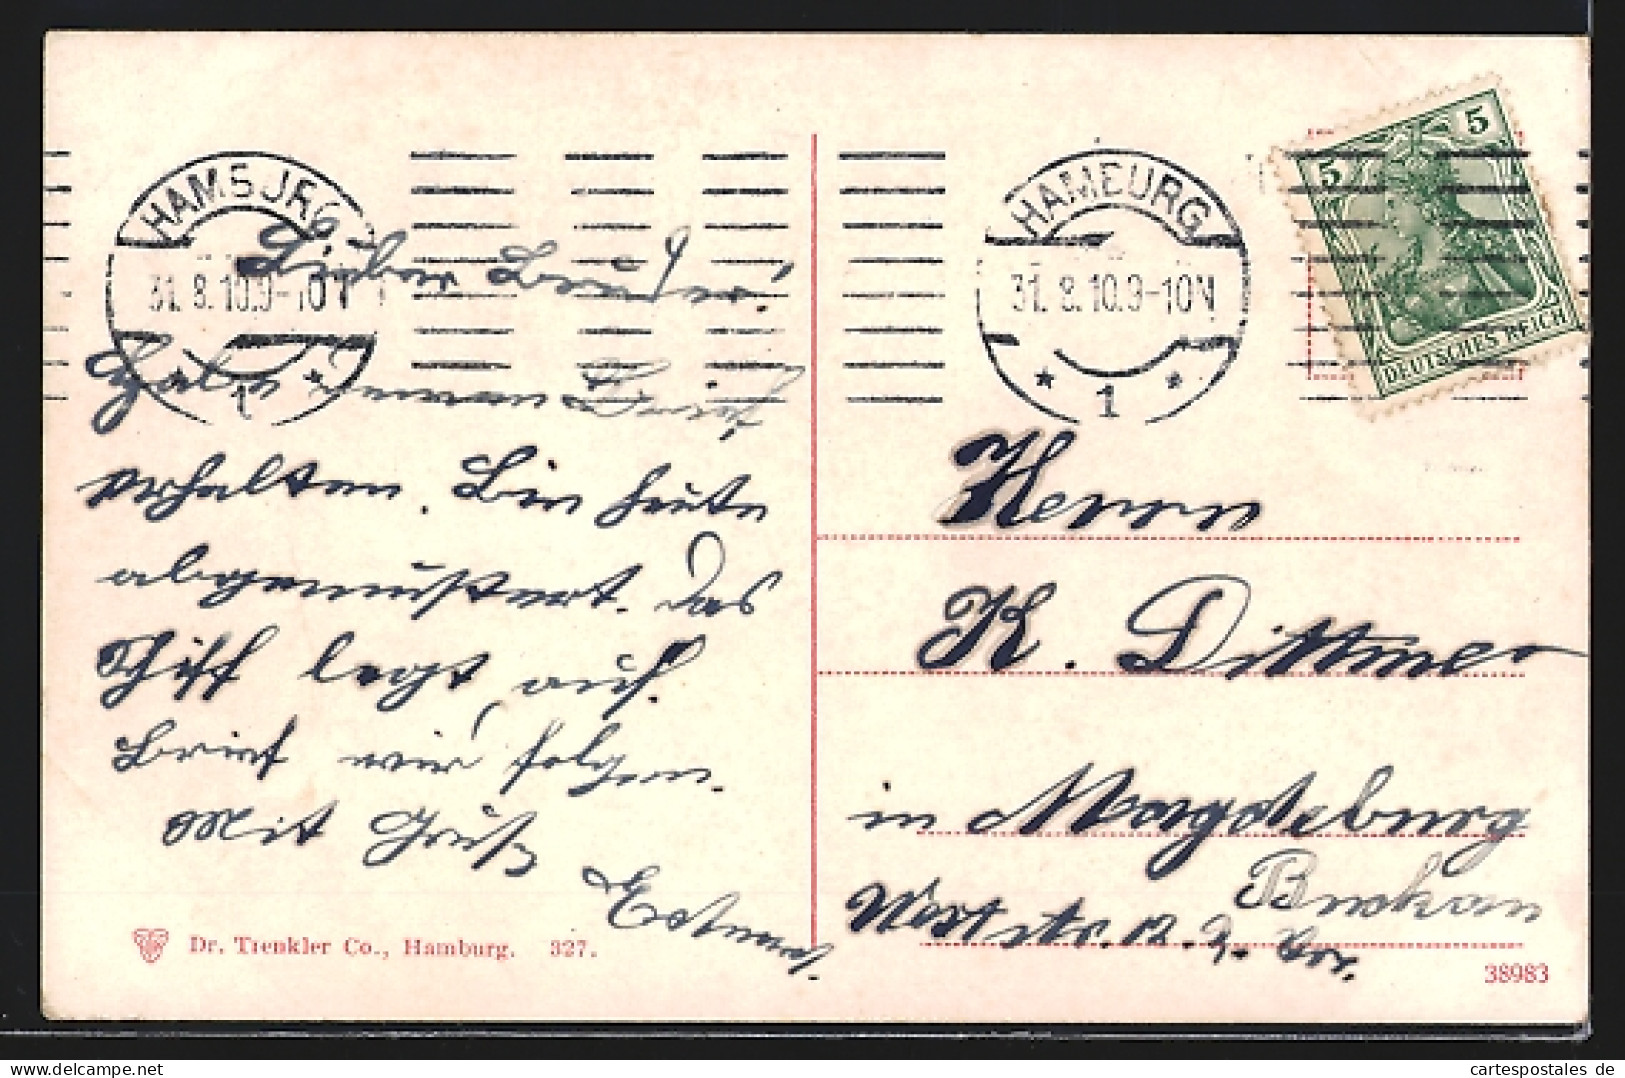 HAMBURG
31. 8. 10. 9-10 N
* 1 *
HAMBURG
31. 8. 10. 9-10 N
* 1 *
5 5
DEUTSCHES REICH
Lieber Bruder!
Habe deinen Brief
erhalten. Bin heute
abgemustert. Das
Schiff legt auf.
Brief wird folgen.
Mit Gruß
Herrn
K. Dittmer
in Magdeburg
Buckau
Dr. Trenkler Co., Hamburg. 327.
38983
cartespostales de